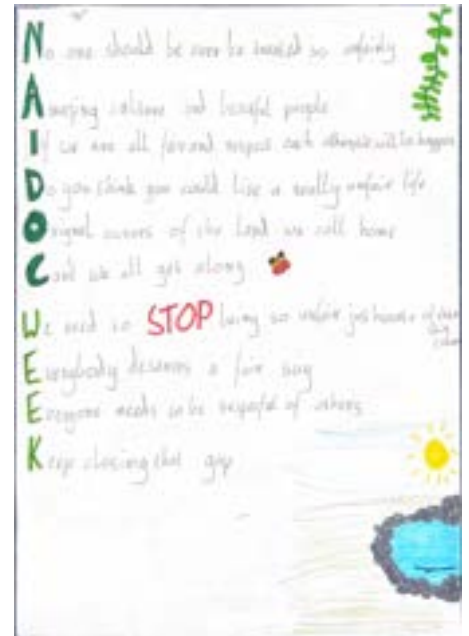 No one should be ever be treated so unfairly
Amazing culture and beautiful people
If we are all fair and respect each other we will be happier
Do you think you could live a really unfair life
Original owners of the land we call home
Can't we all get along
We need to STOP being so unfair just because of their skin colour
Everybody deserves a fair say
Everyone needs to be respectful of others
Keep closing that gap